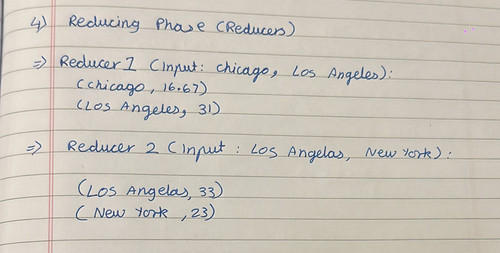 4) Reducing Phase (Reducers)
=> Reducer 1 (Input: chicago, Los Angeles):
(chicago, 16.67)
(Los Angeles, 31)
=> Reducer 2 (Input : Los Angelas, New York) :
(Los Angelas, 33)
( New York , 23)